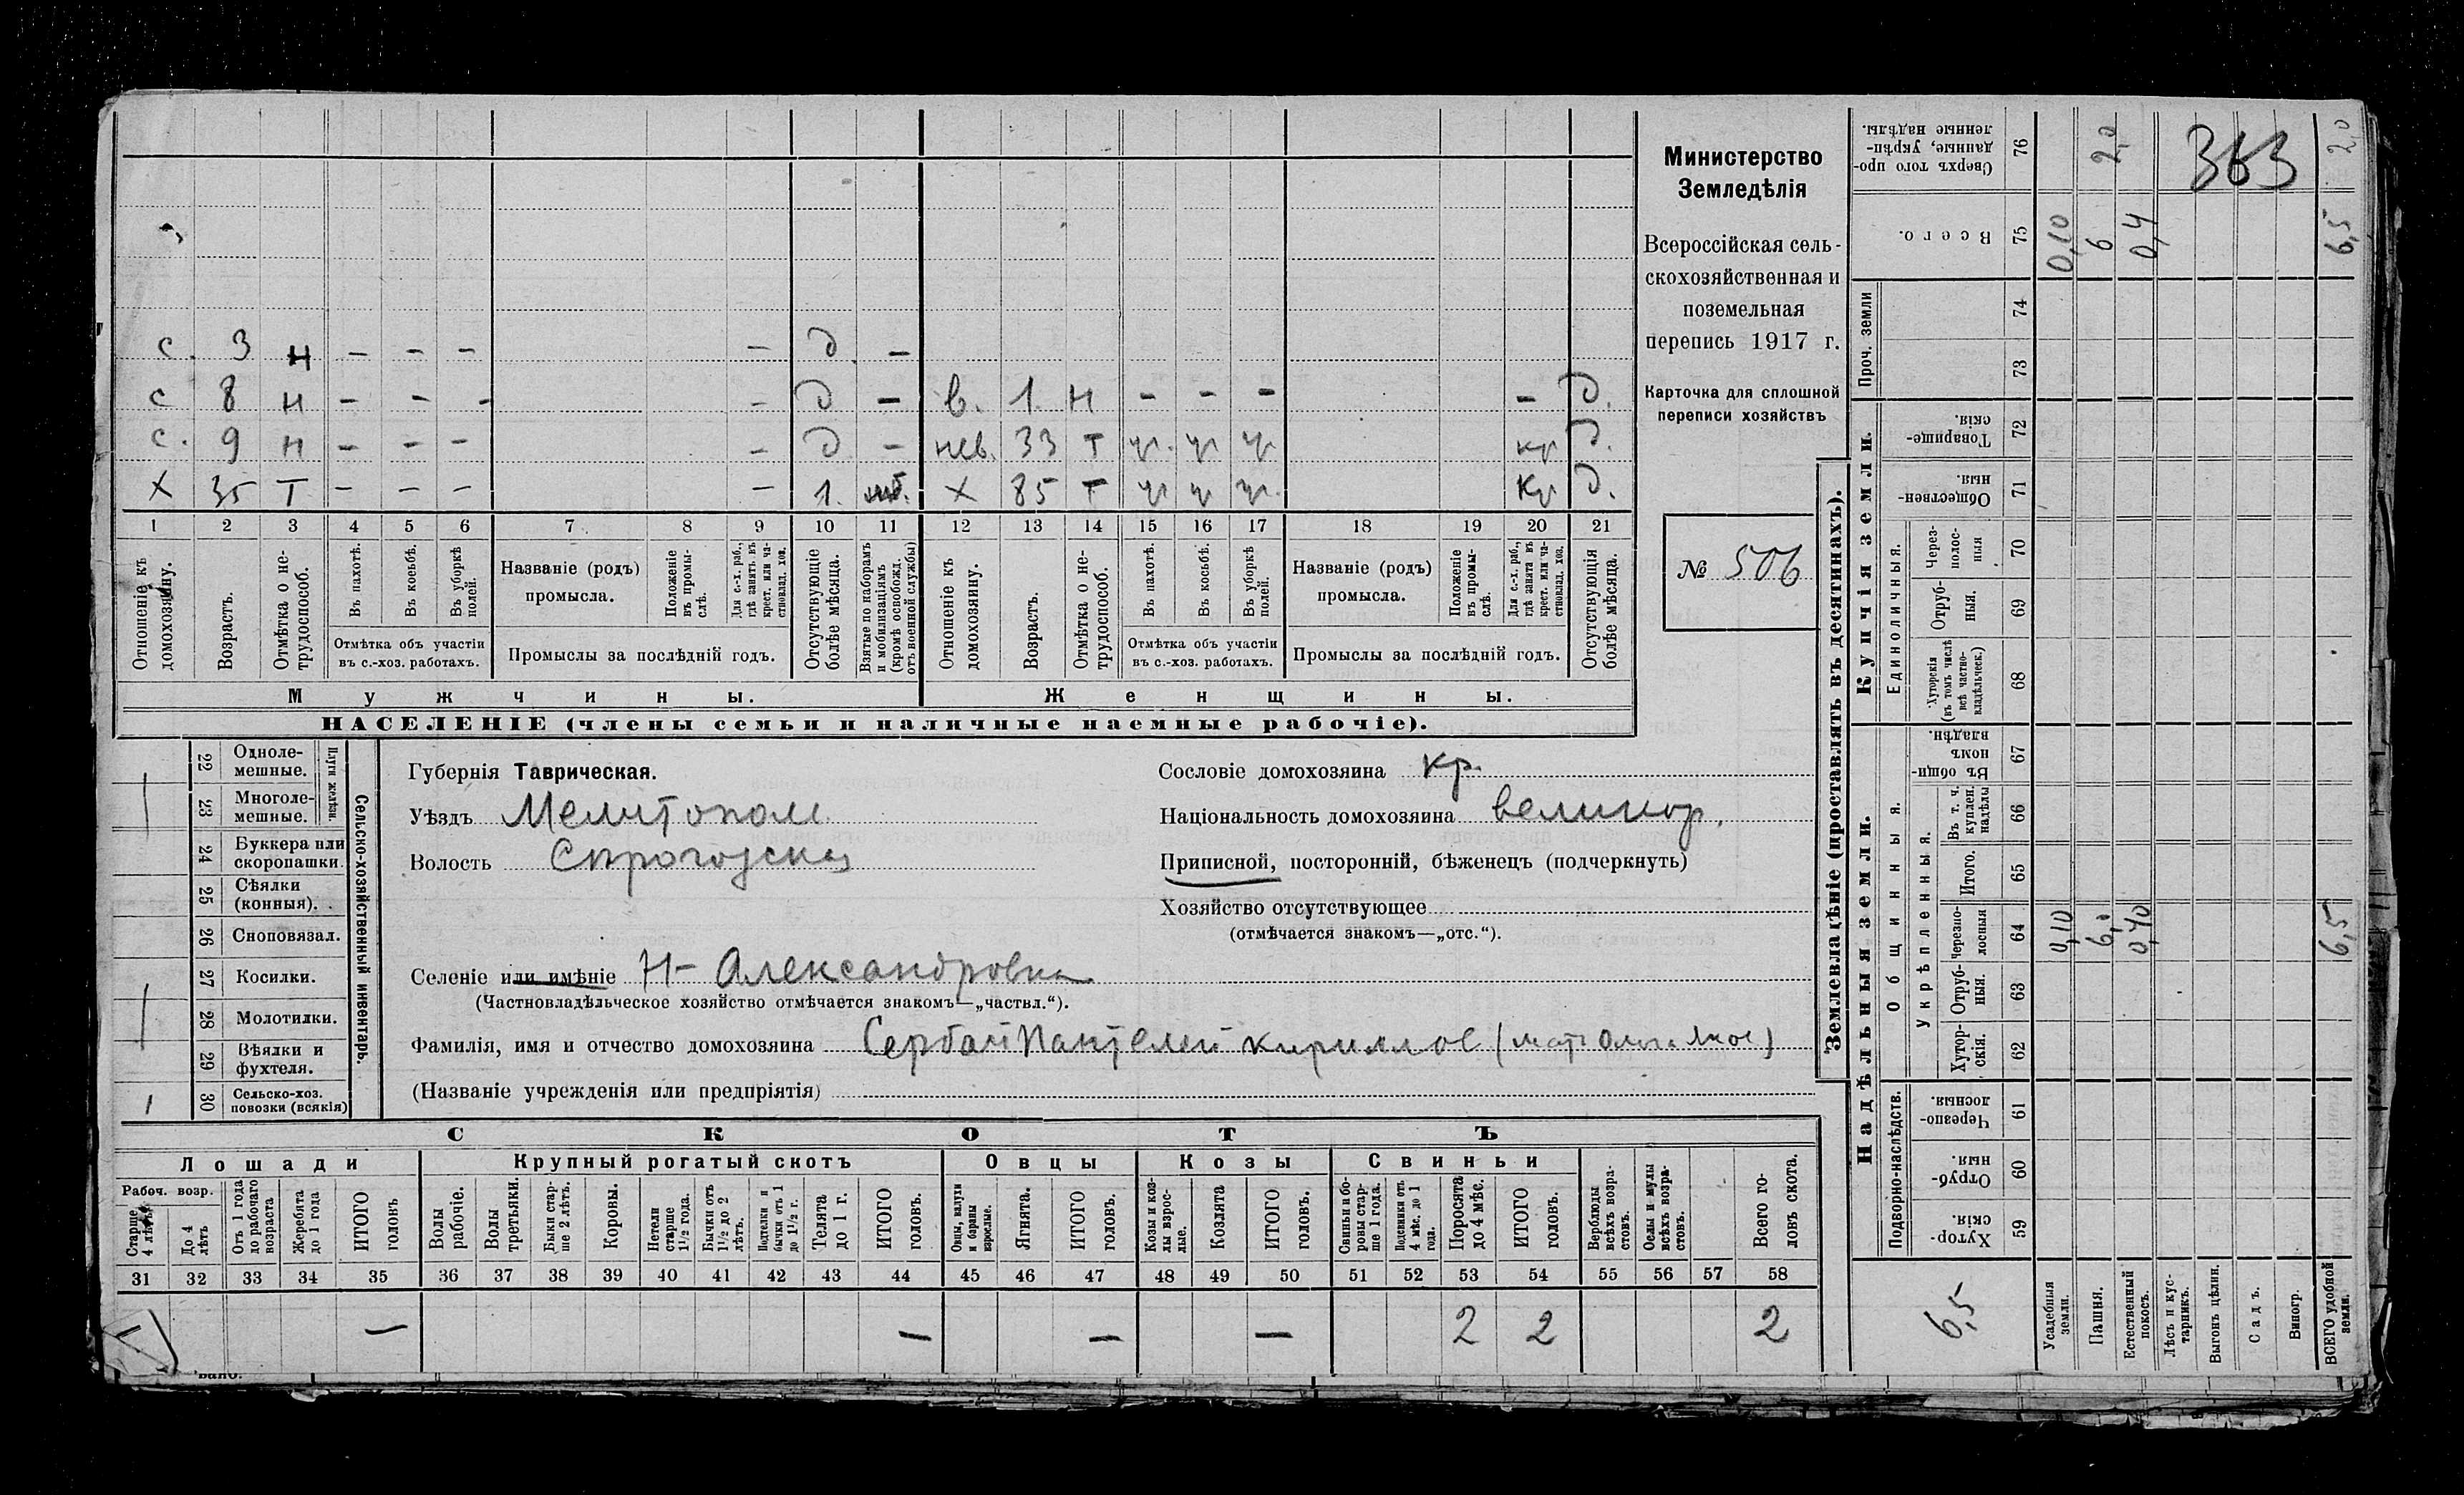 с. 3 н – – – – д. –
с 8 н – – – – д – в. 1 н – – – – д.
с. 9 н – – – – д – нев. 33 т ч. ч ч кр д.
х 35 т – – – – 1. х 85 т ч ч ч. кр д.
1 2 3 4 5 6 7 8 9 10 11 12 13 14 15 16 17 18 19 20 21
Отношеніе къ домохозяину.
Возрастъ.
Отмѣтка о не-
трудоспособ.
Въ пахотѣ.
Въ косьбѣ.
Въ уборкѣ
полей.
Отмѣтка объ участіи
въ с.-хоз. работахъ.
Названіе (родъ)
промысла.
Положеніе
въ промы-
слѣ.
Для с.-х. раб.,
гдѣ занятъ въ
крест. или ча-
ствовлад. хоз.
Промыслы за послѣдній годъ.
Отсутствующіе
болѣе мѣсяца.
Взятые по наборамъ
и мобилизаціямъ
(кромѣ освобожд.
отъ военной службы)
Отношеніе къ
домохозяину.
Возрастъ.
Отмѣтка о не-
трудоспособ.
Въ пахотѣ.
Въ косьбѣ.
Въ уборкѣ
полей.
Отмѣтка объ участіи
въ с.-хоз. работахъ.
Названіе (родъ)
промысла.
Положеніе
въ промы-
слѣ.
Для с.-х. раб.,
гдѣ занята въ
крест. или ча-
ствовлад. хоз.
Промыслы за послѣдній годъ.
Отсутствующія
болѣе мѣсяца.
Мужчины.
Женщины.
НАСЕЛЕНІЕ (члены семьи и наличные наемные рабочіе).
Министерство
Земледѣлія
Всероссійская сель-
скохозяйственная и
поземельная
перепись 1917 г.
Карточка для сплошной
переписи хозяйствъ
№ 506
22 Одноле-
мешные.
23 Многоле-
мешные.
Плуги желѣзн.
24 Буккера или
скоропашки.
25 Сѣялки
(конныя).
26 Сноповязал.
27 Косилки.
28 Молотилки.
29 Вѣялки и
фухтеля.
30 Сельско-хоз.
повозки (всякія)
1
Сельско-хозяйственный инвентарь.
Губернія Таврическая.
Уѣздъ Мелитопол.
Волость
Сословіе домохозяина кр.
Національность домохозяина великор.
Приписной, посторонній, бѣженецъ (подчеркнуть)
Хозяйство отсутствующее
(отмѣчается знакомъ—„отс.“).
Селеніе или имѣніе Н- Александровка
(Частновладѣльческое хозяйство отмѣчается знакомъ—„частвл.“).
Фамилія, имя и отчество домохозяина Сербай Пантелей Кириллов
(Названіе учрежденія или предпріятія)
СКОТЪ
Лошади
Крупный рогатый скотъ
Овцы
Козы
Свиньи
Рабоч. возр.
Старше
4 лѣтъ
До 4
лѣтъ
Отъ 1 года
до рабочаго
возраста
Жеребята
до 1 года
ИТОГО
головъ
Волы
рабочіе.
Волы
третьяки.
Быки стар-
ше 2 лѣтъ.
Коровы.
Нетели
старше
1½ года.
Бычки отъ
1½ до 2
лѣтъ.
Подтелки и
бычки отъ 1
до 1½ г.
Телята
до 1 г.
ИТОГО
головъ.
Овцы, валухи
и бараны
взрослые.
Ягнята.
ИТОГО
головъ.
Козы и коз-
лы взрос-
лые.
Козлята
ИТОГО
головъ.
Свиньи и бо-
ровы стар-
ше 1 года.
Подсвинки отъ
4 мѣс. до 1
года.
Поросята
до 4 мѣс.
ИТОГО
головъ.
Верблюды
всѣхъ возра-
стовъ.
Ослы и мулы
всѣхъ возра-
стовъ.
Всего го-
ловъ скота.
31 32 33 34 35 36 37 38 39 40 41 42 43 44 45 46 47 48 49 50 51 52 53 54 55 56 57 58
– – – – 2 2 2
Землевладѣніе (проставлять въ десятинахъ).
Надѣльныя земли.
Купчія земли.
Проч. земли
Подворно-наслѣдств.
Общинныя.
Укрѣпленныя.
Единоличныя.
Сверхъ того про-
данные, укрѣп-
ленные надѣлы.
76 2,0 363 2,0
Всего.
75 0,10 6 0,4 6,5
74
73
Товарище-
скія.
72
Обществен-
ныя.
71
Через-
полос-
ныя
70
Отруб-
ныя.
69
Хуторскія
(въ томъ числѣ
всѣ частно-
владѣльческ.)
68
Въ общин-
номъ
владѣн.
67
Въ т. ч.
куплен.
надѣлы
66
Итого.
65
Черезпо-
лосныя
64 0,10 6,0 0,40 6,5
Отруб-
ныя.
63
Хутор-
скія.
62
Черезпо-
лосныя.
61
Отруб-
ныя.
60
Хутор-
скія.
59
6,5
Усадебныя
земли.
Пашня.
Естественный
покосъ.
Лѣсъ и кус-
тарникъ.
Выгонъ цѣлин.
Садъ.
Виногр.
ВСЕГО удобной
земли.